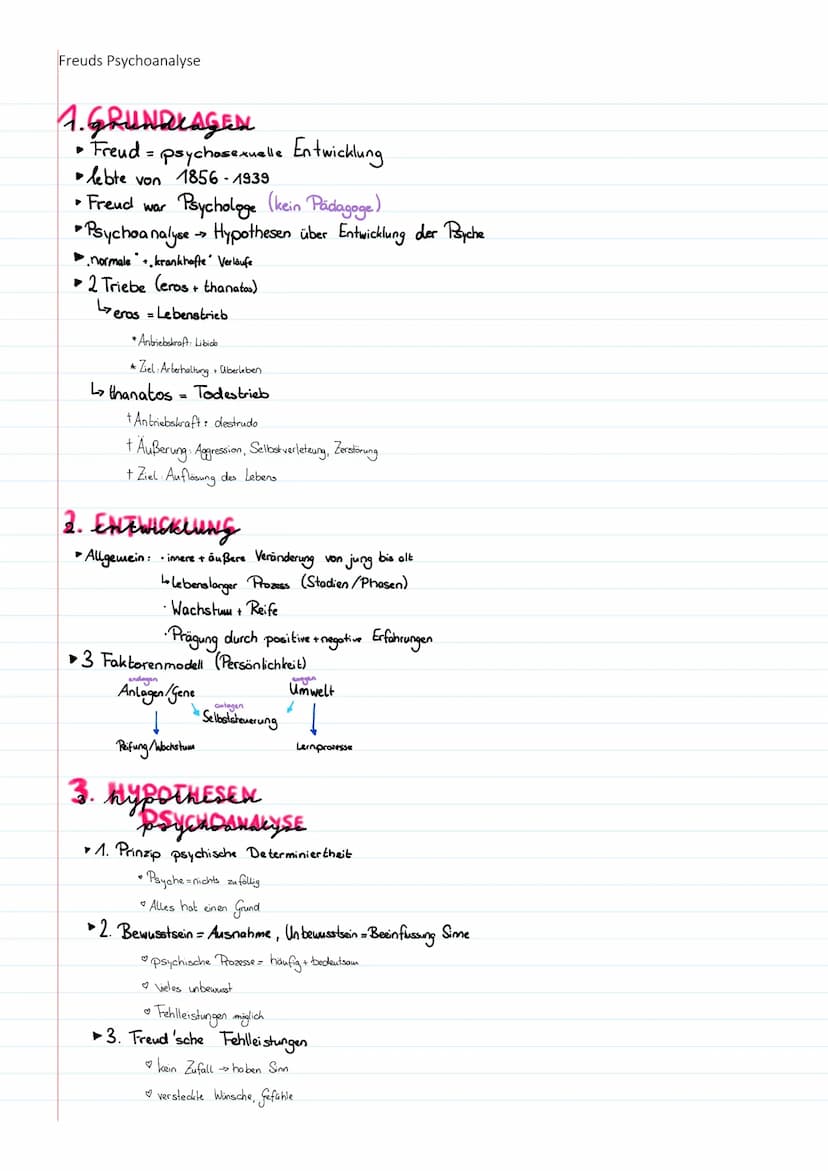 Freuds Psychoanalyse
1. GRUNDLAGEN
▸ Freud = psychosexuelle Entwicklung
▸ lebte von 1856 - 1939
• Freud war Psychologe (kein Pädagoge)
▸ Psychoanalyse → Hypothesen über Entwicklung der Psyche
▸ "normale" + "krankhafte" Verläufe
▸ 2 Triebe (eros + thanatos)
↳ eros = Lebenstrieb
* Antriebskraft: Libido
* Ziel: Arterhaltung + Überleben
↳ thanatos = Todestrieb
† Antriebskraft: destrudo
† Äußerung: Aggression, Selbstverletzung, Zerstörung
† Ziel: Auflösung des Lebens
2. ENTWICKLUNG
▸ Allgemein: • innere + äußere Veränderung von jung bis alt
↳ Lebenslanger Prozess (Stadien/Phasen)
• Wachstum + Reife
• Prägung durch positive + negative Erfahrungen
▸ 3 Faktorenmodell (Persönlichkeit)
endogen exogen
Anlagen/Gene Umwelt
autogen
Selbststeuerung
Reifung/Wachstum Lernprozesse
3. HYPOTHESEN
PSYCHOANALYSE
▸ 1. Prinzip psychische Determiniertheit
♥ Psyche = nichts zufällig
♥ Alles hat einen Grund
▸ 2. Bewusstsein = Ausnahme, Unbewusstsein = Beeinflussung Sinne
♥ psychische Prozesse = häufig + bedeutsam
♥ vieles unbewusst
♥ Fehlleistungen möglich
▸ 3. Freud'sche Fehlleistungen
♥ kein Zufall → haben Sinn
♥ versteckte Wünsche, Gefühle